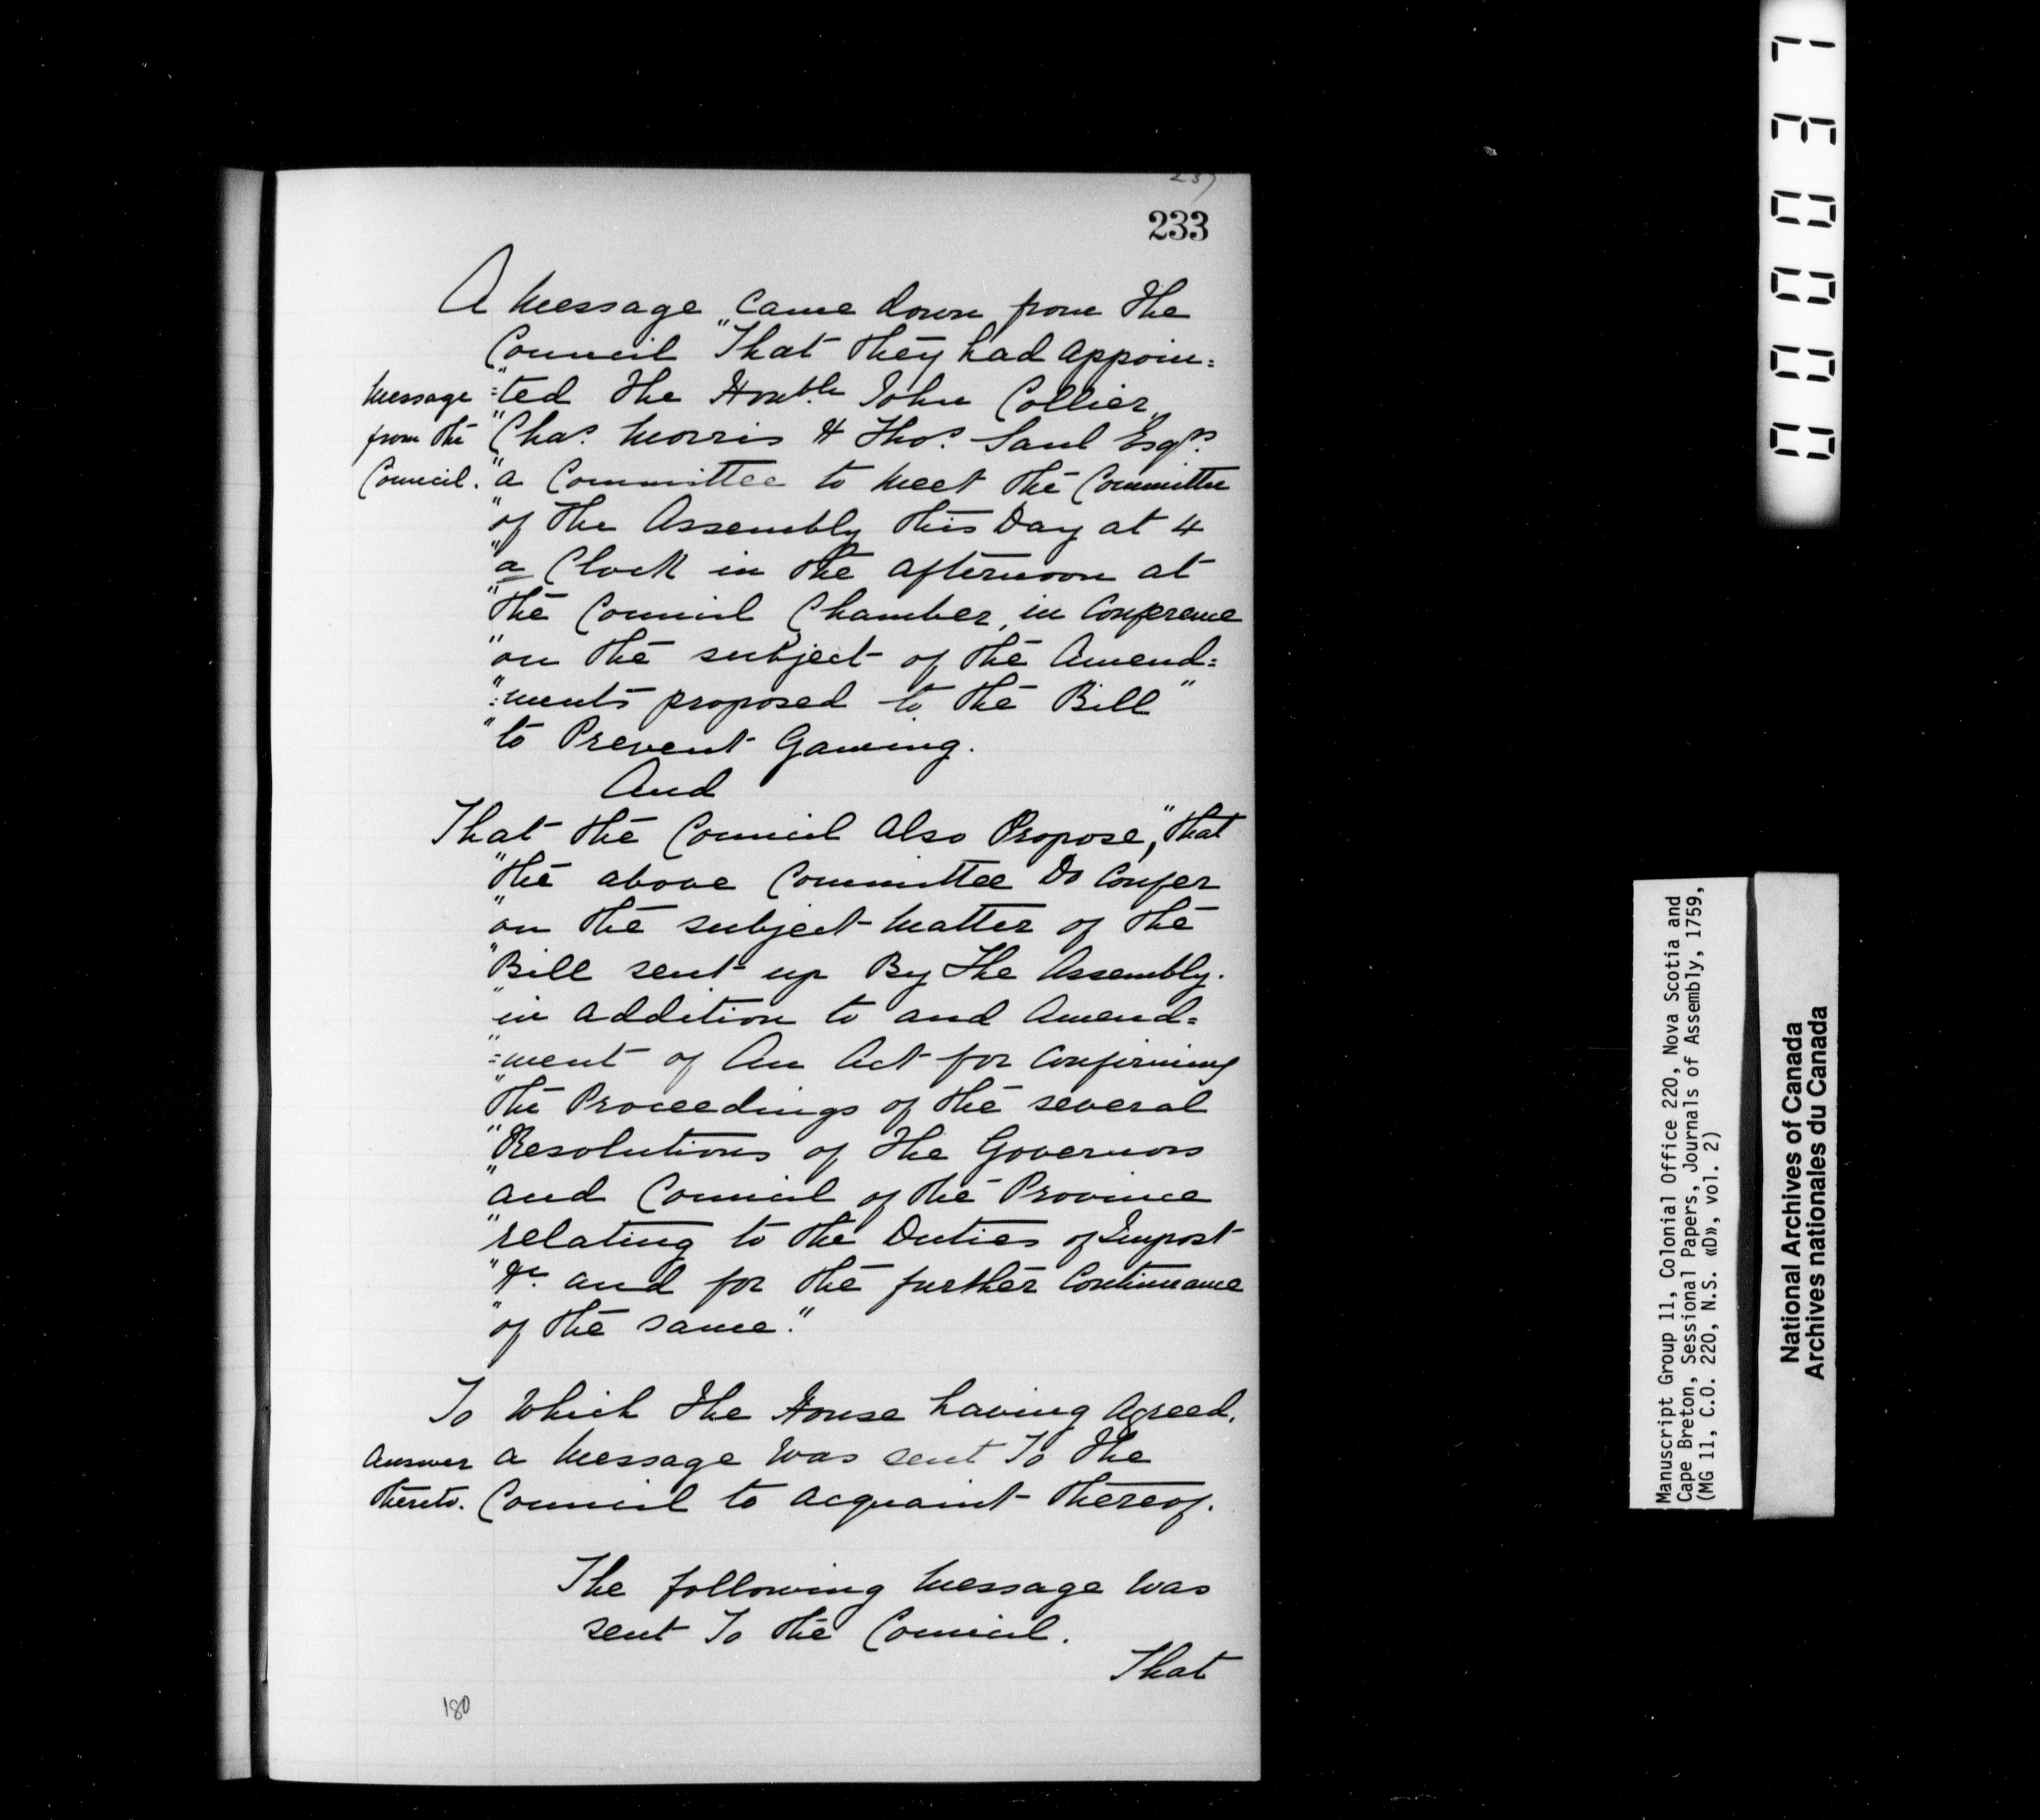 233
A Message came down from the
Council "That they had appoin=
Message
from the
Council.
"=ted the Honble John Collier,
"Chas. Morris & Thos. Saul Esqrs.
"a Committee to meet the Committee
"of the Assembly this Day at 4
"a Clock in the afternoon at
"the Council Chamber, in Conference
"on the subject of the Amend=
"=ments proposed to the Bill"
"to Prevent Gaming.
And
That the Council also Propose, "that
"the above Committee Do Confer
"on the subject matter of the
"Bill sent up By The Assembly.
"in addition to and Amend=
"=ment of An Act for Confirming
"the Proceedings of the several
"Resolutions of the Governors
"and Council of the Province
"relating to the Duties of Impost
"&c. and for the further Continuance
"of the same."
To Which the House having Agreed,
Answer
thereto.
a Message was sent To the
Council to acquaint thereof.
The following Message was
sent To the Council.
That
180
000037
Manuscript Group 11, Colonial Office 220, Nova Scotia and
Cape Breton, Sessional Papers, Journals of Assembly, 1759,
(MG 11, C.O. 220, N.S. «D», vol. 2)
National Archives of Canada
Archives nationales du Canada